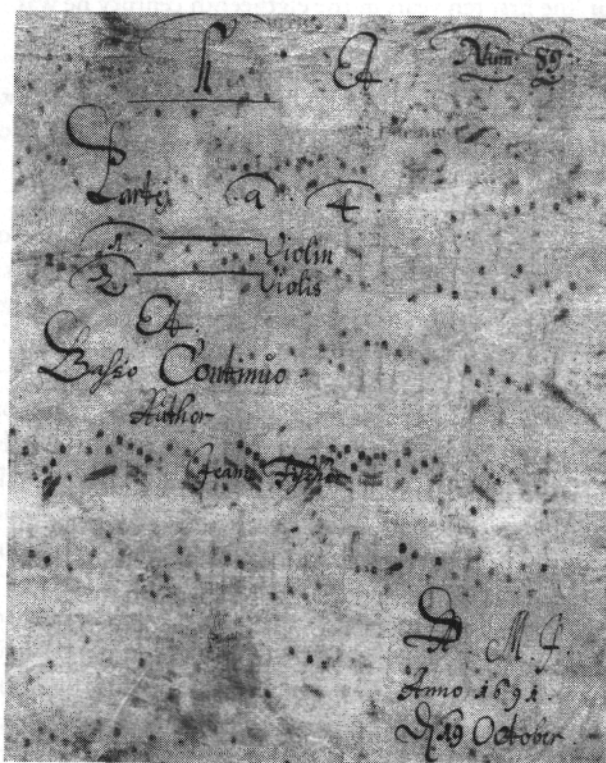 A Num̄. 89
Partÿ a 4
1 Violin
2 Violis
Et
Basso Continŭo
Author
Jean
M. J.
Anno 1691.
19 October